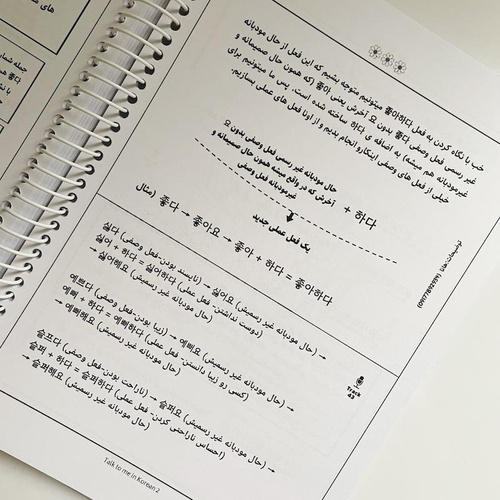 خب با نگاه کردن به فعل 좋아하다 میتونیم متوجه بشیم که این فعل از حال مودبانه
غیر رسمی فعل وصفی 좋다 بدون 요 آخرش یعنی 좋아 (که همون حال صمیمانه و
غیرمودبانه هم میشه) به اضافه ی 하다 ساخته شده است. پس ما میتونیم برای
خیلی از فعل های وصفی اینکارو انجام بدیم و از اونا فعل های عملی بسازیم.
حال مودبانه غیر رسمی فعل وصفی بدون 요
آخرش که در واقع میشه همون حال صمیمانه و
غیرمودبانه فعل وصفی
+ 하다
یک فعل عملی جدید
مثال) 좋다 → 좋아요 → 좋아 + 하다 = 좋아하다
싫다 (ناپسند بودن-فعل وصفی) → 싫어요 (حال مودبانه غیر رسمیش) →
싫어 + 하다 = 싫어하다 (دوست نداشتن-فعل عملی)
→ 싫어해요 (حال مودبانه غیر رسمیش)
예쁘다 (زیبا بودن-فعل وصفی) → 예뻐요 (حال مودبانه غیر رسمیش) →
예뻐 + 하다 = 예뻐하다 (کسی رو زیبا دانستن-فعل عملی)
→ 예뻐해요 (حال مودبانه غیر رسمیش)
슬프다 (ناراحت بودن-فعل وصفی) → 슬퍼요 (حال مودبانه غیر رسمیش) →
슬퍼 + 하다 = 슬퍼하다 (احساس ناراحتی کردن-فعل عملی)
→ 슬퍼해요 (حال مودبانه غیر رسمیش)
Track
Talk to me in Korean 2